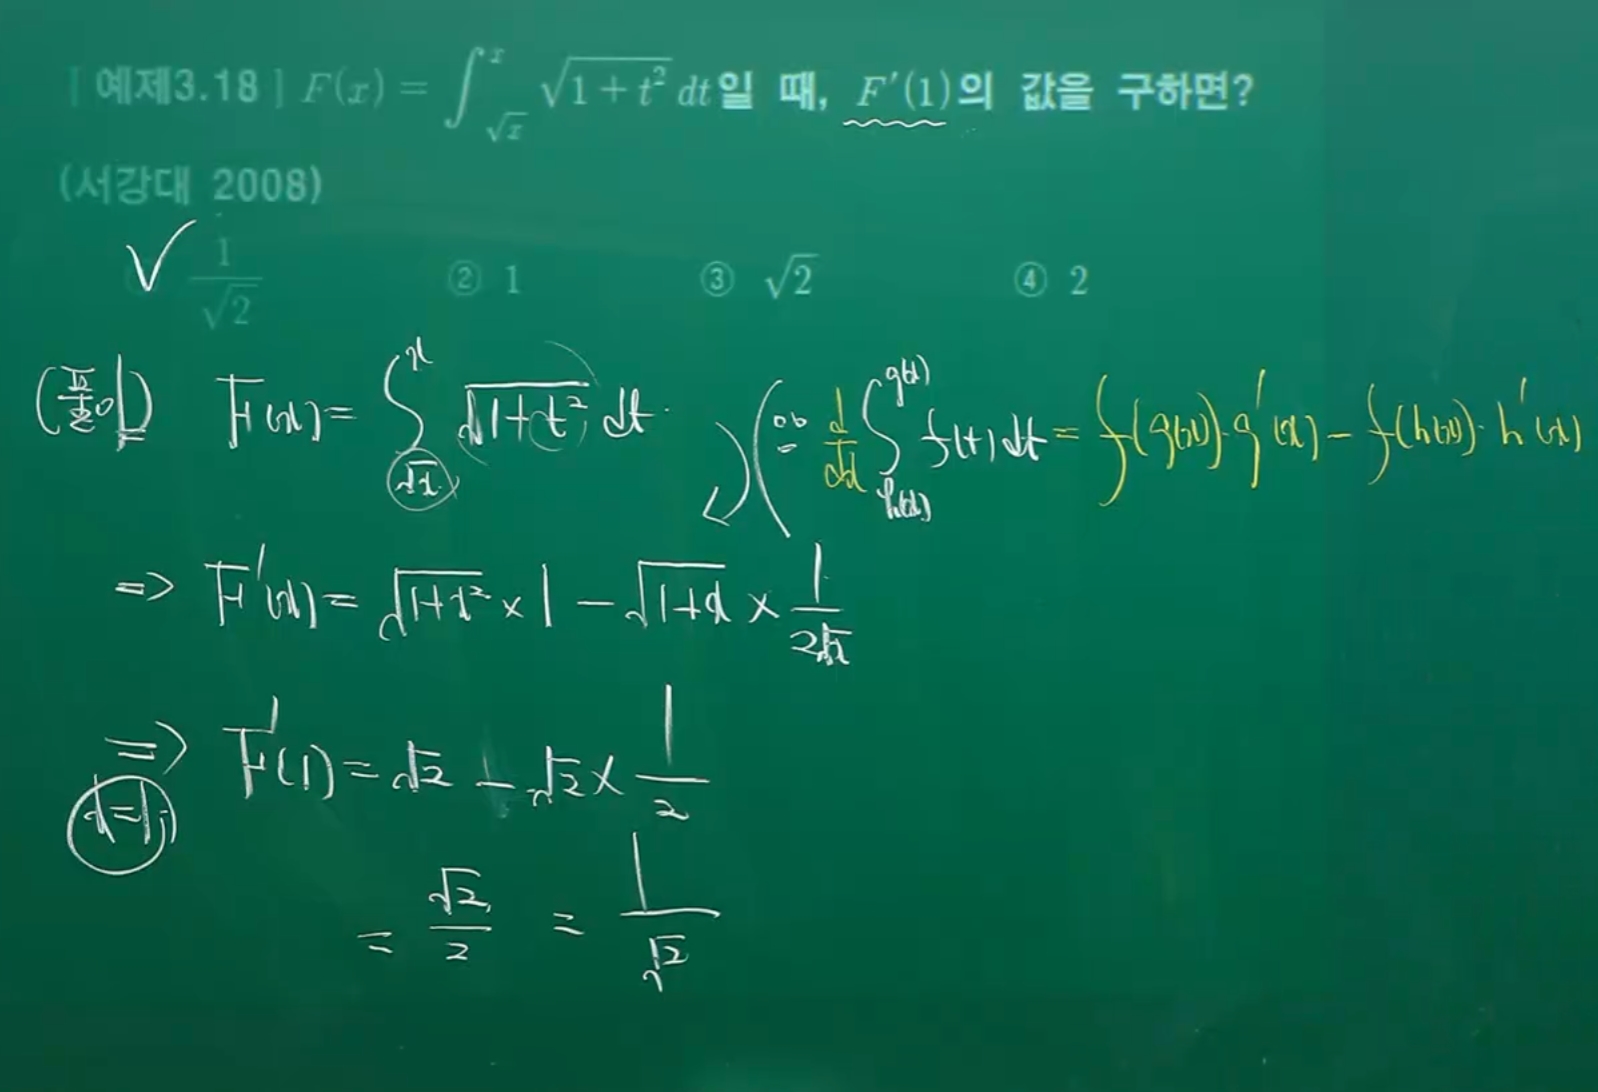 [ 예제3.18 ] F(x) = ∫_{√x}^{x} √(1+t²) dt일 때, F′(1)의 값을 구하면?
(서강대 2008)
√ 1/√2 ② 1 ③ √2 ④ 2
(풀이) F(x) = ∫_{√x}^{x} √(1+t²) dt. (∵ d/dx ∫_{h(x)}^{g(x)} f(t) dt = f(g(x))·g′(x) − f(h(x))·h′(x)
⇒ F′(x) = √(1+x²) × 1 − √(1+x) × 1/(2√x)
⇒ F′(1) = √2 − √2 × 1/2
x=1;
= √2/2 = 1/√2